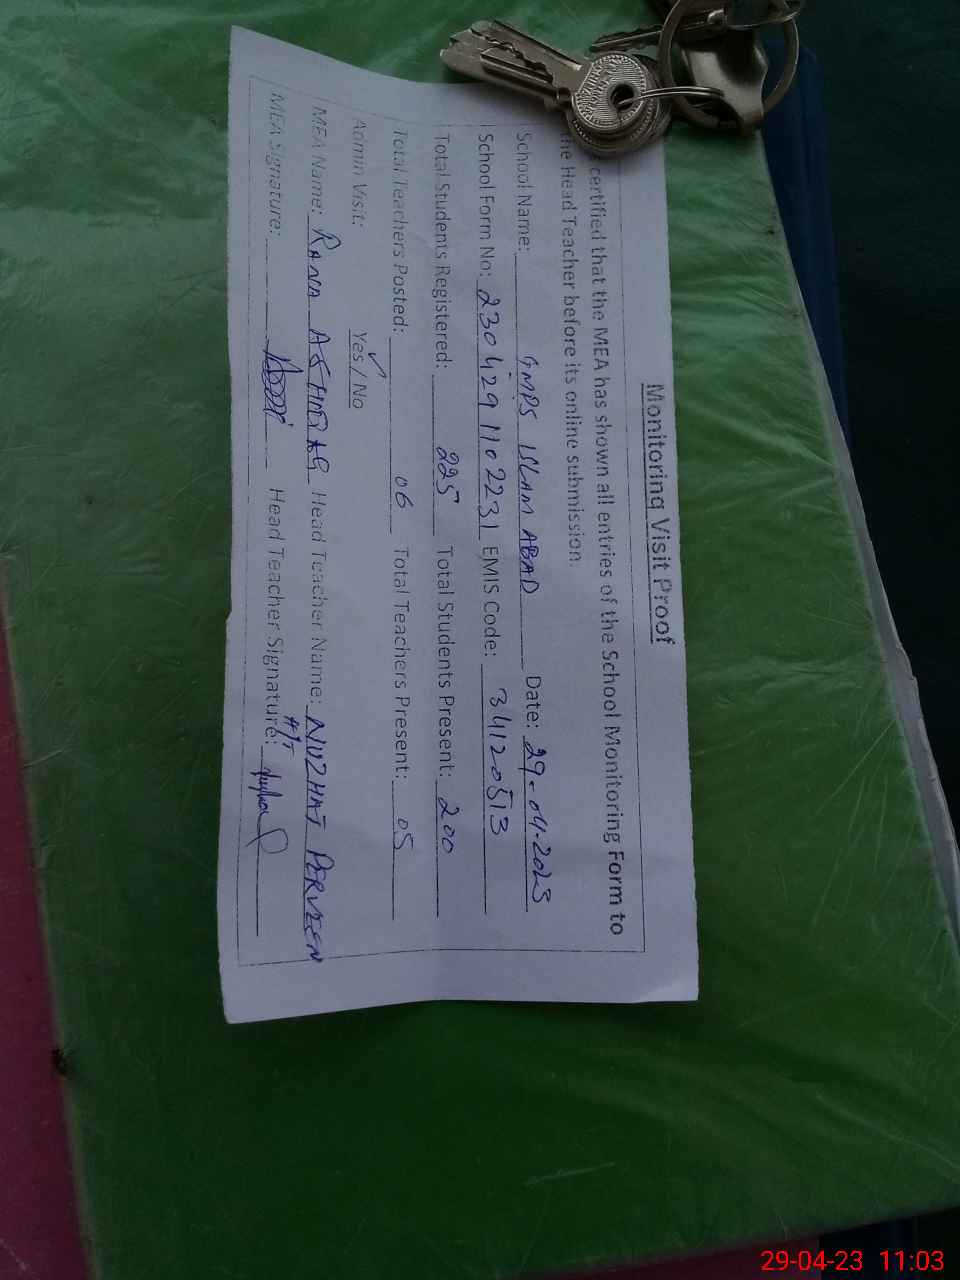 Monitoring Visit Proof
certified that the MEA has shown all entries of the School Monitoring Form to
the Head Teacher before its online submission.
School Name: GMPS ISLAM ABAD Date: 29-04-2023
School Form No: 2304291102231 EMIS Code: 34120513
Total Students Registered: 225 Total Students Present: 200
Total Teachers Posted: 06 Total Teachers Present: 05
Admin Visit: Yes / No
MEA Name: RANA ASHFAQ Head Teacher Name: NUZHAT PERVEEN
MEA Signature: Head Teacher Signature: H/T
29-04-23 11:03